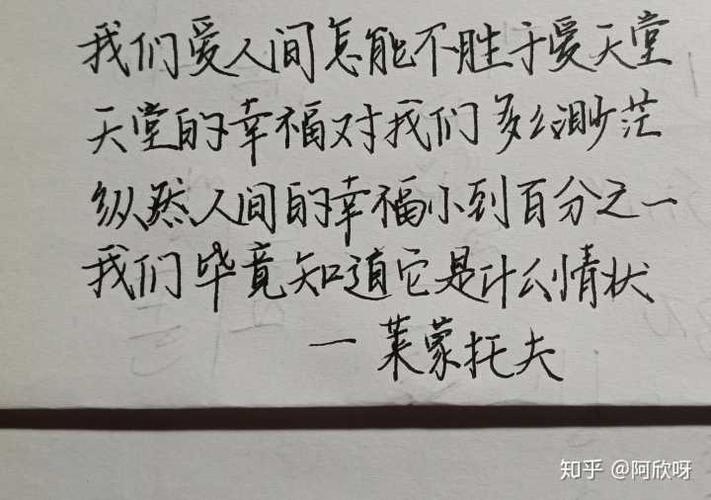 我们爱人间怎能不胜于爱天堂
天堂的幸福对我们多么渺茫
纵然人间的幸福小到百分之一
我们毕竟知道它是什么情状
一莱蒙托夫
知乎 @阿欣呀